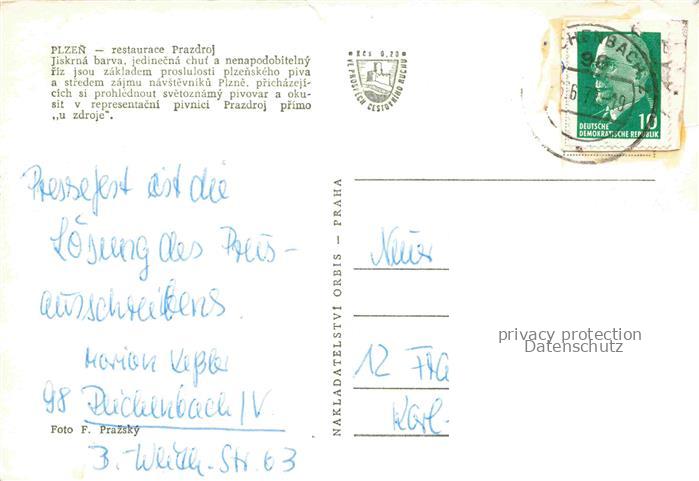 PLZEŇ — restaurace Prazdroj
Jiskrná barva, jedinečná chuť a nenapodobitelný
říz jsou základem proslulosti plzeňského piva
a středem zájmu návštěvníků Plzně, přicházejí-
cích si prohlédnout světoznámý pivovar a oku-
sit v representační pivnici Prazdroj přímo
„u zdroje".
Kčs 0,20
VE PROSPĚCH CESTOVNÍHO RUCHU
10
DEUTSCHE
DEMOKRATISCHE REPUBLIK
Pressefest ist die
Lösung des Preis-
ausschreibens.
Marion Keßler
98 Reichenbach/V.
Str. 63
Foto F. Pražský
NAKLADATELSTVÍ ORBIS — PRAHA
Neuer
12
Karl-
privacy protection
Datenschutz